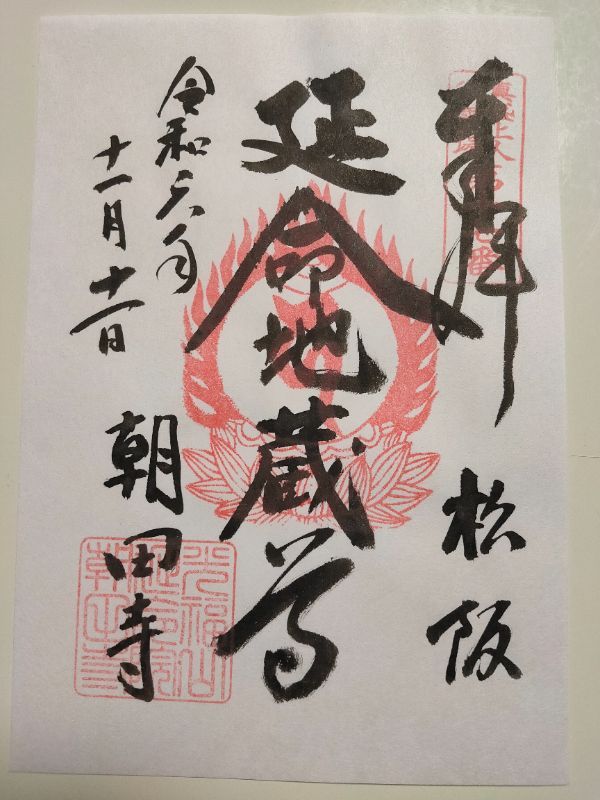 奉拝
松阪
延命地蔵尊
令和六年
十一月十一日
朝田寺